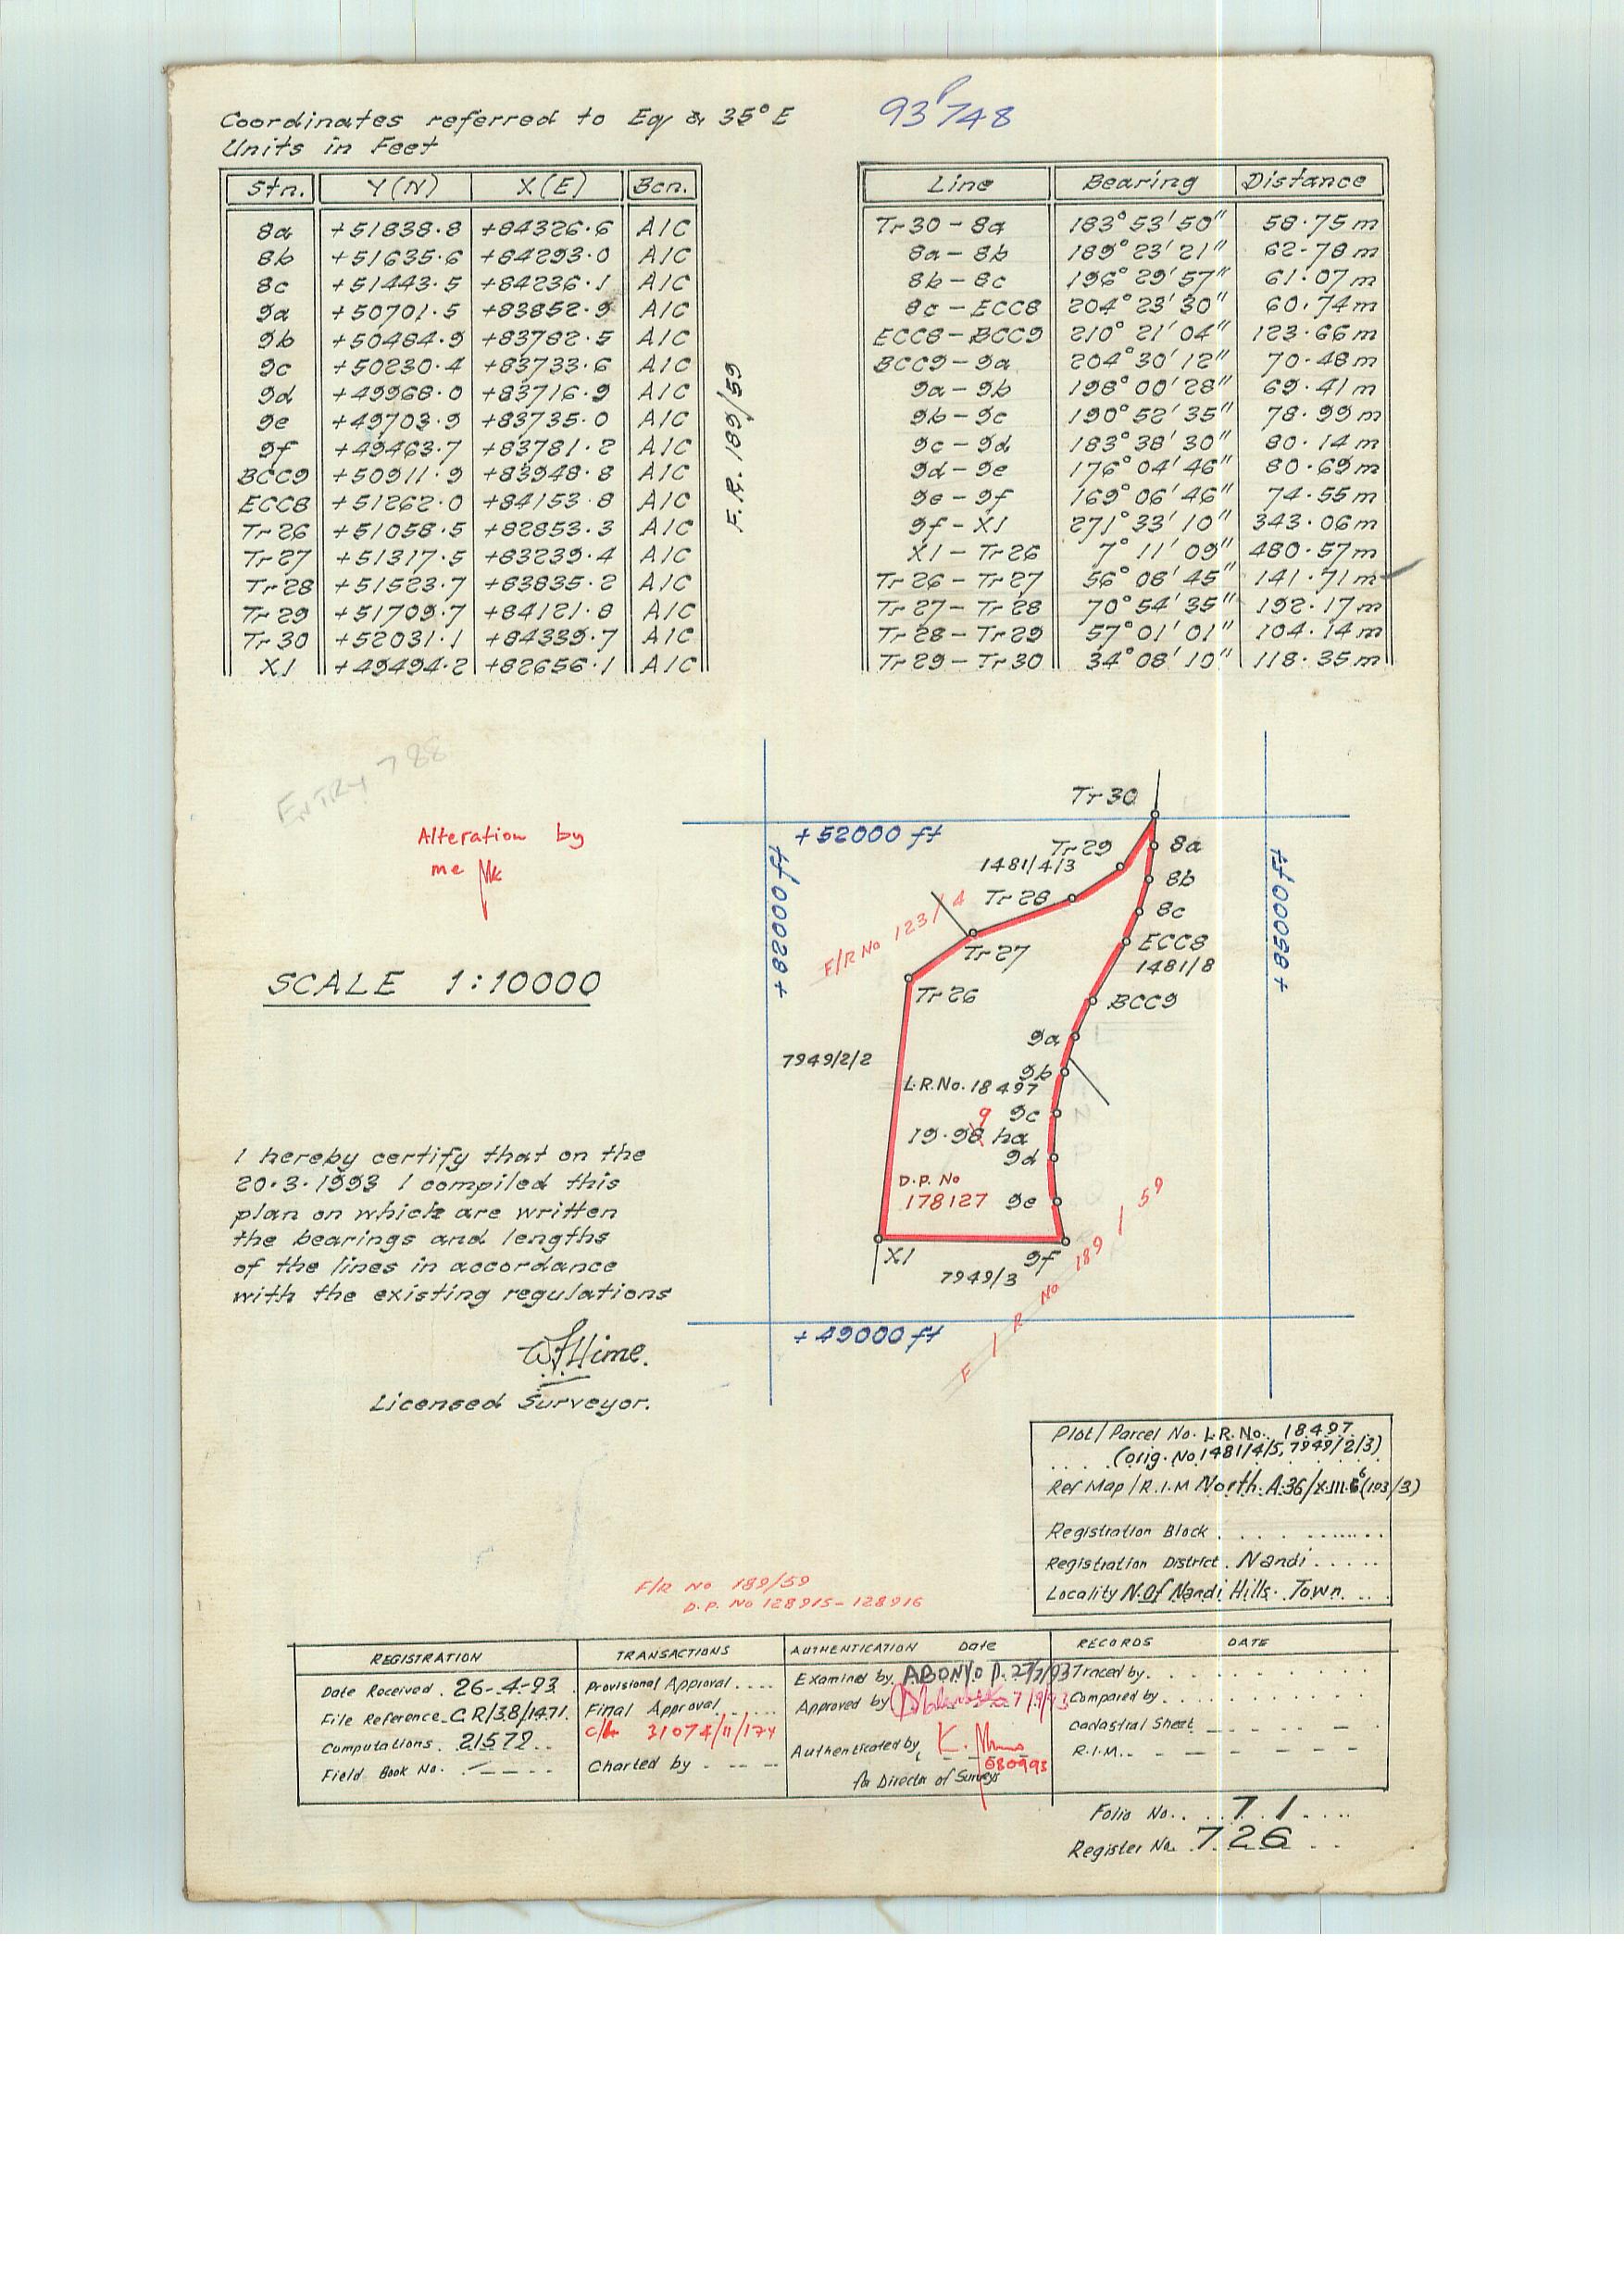 93P/748
Coordinates referred to Eq & 35° E
Units in Feet
Stn. Y(N) X(E) Bcn.
8a +51838.8 +84326.6 A/C
8b +51635.6 +84293.0 A/C
8c +51443.5 +84236.1 A/C
9a +50701.5 +83852.9 A/C
9b +50484.9 +83782.5 A/C
9c +50230.4 +83733.6 A/C
9d +49968.0 +83716.9 A/C
9e +49703.9 +83735.0 A/C
9f +49463.7 +83781.2 A/C
BCC9 +50911.9 +83948.8 A/C
ECC8 +51262.0 +84153.8 A/C
Tr26 +51058.5 +82853.3 A/C
Tr27 +51317.5 +83239.4 A/C
Tr28 +51523.7 +83835.2 A/C
Tr29 +51709.7 +84121.8 A/C
Tr30 +52031.1 +84339.7 A/C
X1 +49494.2 +82656.1 A/C
F.R. 189/59
Line Bearing Distance
Tr30-8a 183° 53' 50" 58.75m
8a-8b 189° 23' 21" 62.78m
8b-8c 196° 29' 57" 61.07m
8c-ECC8 204° 23' 30" 60.74m
ECC8-BCC9 210° 21' 04" 123.66m
BCC9-9a 204° 30' 12" 70.48m
9a-9b 198° 00' 28" 69.41m
9b-9c 190° 52' 35" 78.99m
9c-9d 183° 38' 30" 80.14m
9d-9e 176° 04' 46" 80.69m
9e-9f 169° 06' 46" 74.55m
9f-X1 271° 33' 10" 343.06m
X1-Tr26 7° 11' 09" 480.57m
Tr26-Tr27 56° 08' 45" 141.71m
Tr27-Tr28 70° 54' 35" 192.17m
Tr28-Tr29 57° 01' 01" 104.14m
Tr29-Tr30 34° 08' 10" 118.35m
ENTRY 788
Alteration by
me
SCALE 1:10000
+52000 ft
+82000 ft
+85000 ft
+49000 ft
Tr30
8a
Tr29
1481/4/3
8b
Tr28
8c
F/R No 123/4
Tr27
ECC8
1481/8
Tr26
BCC9
9a
7949/2/2
9b
L.R.No. 18497
9
9c
19.98 ha
9d
D.P. No
178127
9e
X1
9f
7949/3
F/R No 189/59
I hereby certify that on the
20.3.1993 I compiled this
plan on which are written
the bearings and lengths
of the lines in accordance
with the existing regulations
WFHime.
Licensed Surveyor.
Plot/Parcel No. L.R.No. 18497
(orig. No 1481/4/5, 7949/2/3)
Ref Map/R.I.M North.A.36/X.III.6 (193/3)
Registration Block
Registration District. Nandi
Locality N.Of Nandi Hills. Town
F/R No 189/59
D.P. No 128915-128916
REGISTRATION
Date Received. 26-4-93
File Reference. CR/38/1471.
Computations. 21572
Field Book No.
TRANSACTIONS
Provisional Approval
Final Approval
31074/11/174
Charted by
AUTHENTICATION Date
Examined by ABONYO P. 27/7/93
Approved by 7/9/93
Authenticated by
080993
for Director of Surveys
RECORDS DATE
Traced by.
Compared by
Cadastral Sheet
R.I.M.
Folio No. 71
Register No. 726